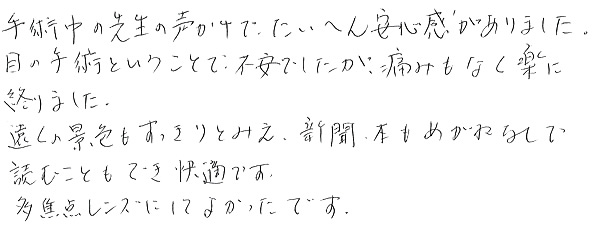 手術中の先生の声かけで、たいへん安心感がありました。
目の手術ということで、不安でしたが、痛みもなく楽に
終りました。
遠くの景色もすっきりとみえ、新聞、本もめがねなしで
読むこともでき快適です。
多焦点レンズにしてよかったです。